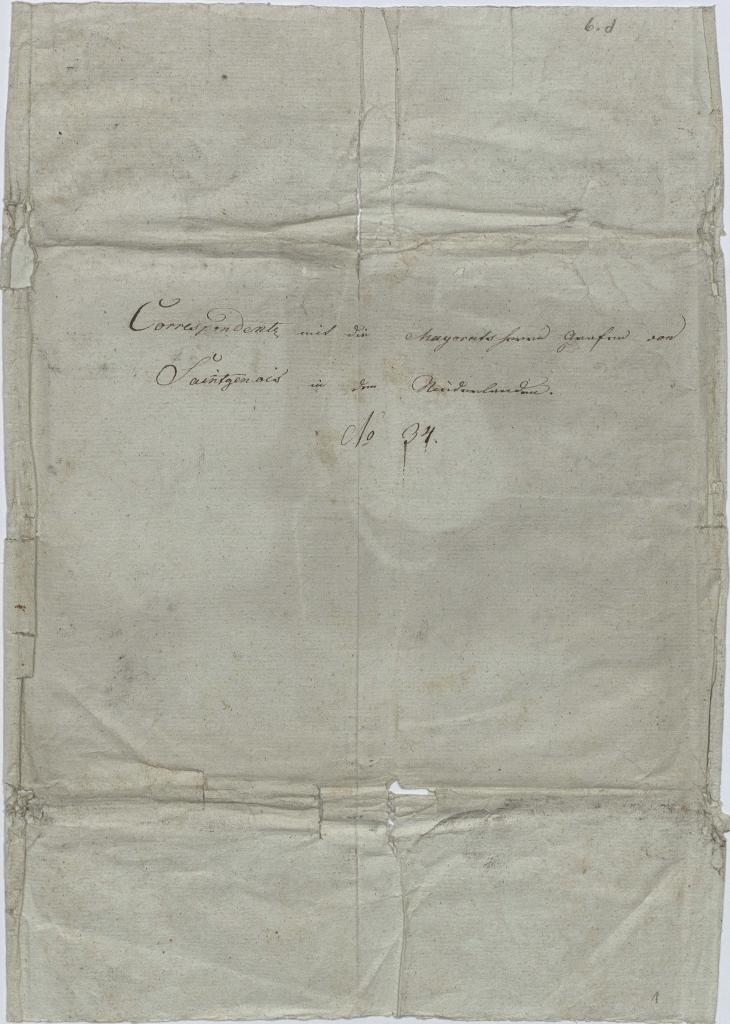 6.d
Correspondentz mit die Mayorats herrn Grafen von
Saintgenois in den Niederlanden.
No 34.
1